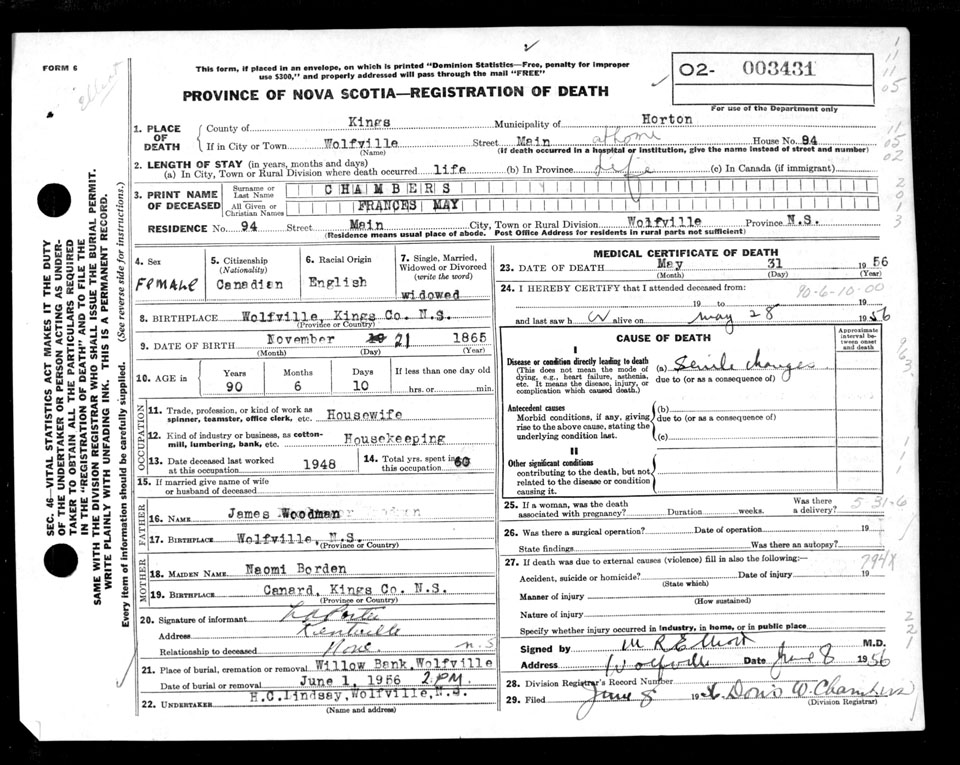 FORM 6
Elliott
This form, if placed in an envelope, on which is printed "Dominion Statistics—Free, penalty for improper
use $300," and properly addressed will pass through the mail "FREE"
PROVINCE OF NOVA SCOTIA—REGISTRATION OF DEATH
O2- 003431
For use of the Department only
1. PLACE OF DEATH
County of Kings Municipality of Horton
If in City or Town Wolfville Street Main at home House No. 94
(Name) (If death occurred in a hospital or institution, give the name instead of street and number)
2. LENGTH OF STAY (in years, months and days)
(a) In City, Town or Rural Division where death occurred life (b) In Province life (c) In Canada (if immigrant)
3. PRINT NAME OF DECEASED
Surname or Last Name CHAMBERS
All Given or Christian Names FRANCES MAY
RESIDENCE No. 94 Street Main City, Town or Rural Division Wolfville Province N.S.
(Residence means usual place of abode. Post Office Address for residents in rural parts not sufficient)
4. Sex
Female
5. Citizenship
(Nationality)
Canadian
6. Racial Origin
English
7. Single, Married,
Widowed or Divorced
(write the word)
widowed
8. BIRTHPLACE Wolfville, Kings Co. N.S.
(Province or Country)
9. DATE OF BIRTH November 21 1865
(Month) (Day) (Year)
10. AGE in
Years Months Days If less than one day old
90 6 10 hrs. or min.
OCCUPATION
11. Trade, profession, or kind of work as
spinner, teamster, office clerk, etc. Housewife
12. Kind of industry or business, as cotton-
mill, lumbering, bank, etc. Housekeeping
13. Date deceased last worked
at this occupation 1948
14. Total yrs. spent in
this occupation 60
15. If married give name of wife
or husband of deceased
FATHER
16. NAME James Woodman
17. BIRTHPLACE Wolfville, N.S.
(Province or Country)
MOTHER
18. MAIDEN NAME Naomi Borden
19. BIRTHPLACE Canard, Kings Co. N.S.
(Province or Country)
20. Signature of informant
Address Kentville
N.S
Relationship to deceased None
21. Place of burial, cremation or removal Willow Bank, Wolfville
Date of burial or removal June 1, 1956 2 P.M.
22. UNDERTAKER H.C. Lindsay, Wolfville, N.S.
(Name and address)
MEDICAL CERTIFICATE OF DEATH
23. DATE OF DEATH May 31 1956
(Month) (Day) (Year)
24. I HEREBY CERTIFY that I attended deceased from:
90-6-10-00
19 to 19
and last saw h alive on May 28 1956
CAUSE OF DEATH
Approximate
interval be-
tween onset
and death
I
Disease or condition directly leading to death
(This does not mean the mode of
dying, e.g., heart failure, asthenia,
etc. It means the disease, injury, or
complication which caused death.)
(a) Senile changes
due to (or as a consequence of)
Antecedent causes
Morbid conditions, if any, giving
rise to the above cause, stating the
underlying condition last.
(b)
due to (or as a consequence of)
(c)
II
Other significant conditions
contributing to the death, but not
related to the disease or condition
causing it.
25. If a woman, was the death
associated with pregnancy? Duration weeks. Was there
a delivery?
5-31-6
26. Was there a surgical operation? Date of operation 19
State findings Was there an autopsy?
27. If death was due to external causes (violence) fill in also the following:—
794X
Accident, suicide or homicide? Date of injury 19
(State which)
Manner of injury
(How sustained)
Nature of injury
Specify whether injury occurred in industry, in home, or in public place
Signed by M R Elliott M.D.
Address Wolfville Date June 8 1956
28. Division Registrar's Record Number
29. Filed June 8 1956 Doris W. Chambers
(Division Registrar)
SEC. 46—VITAL STATISTICS ACT MAKES IT THE DUTY
OF THE UNDERTAKER OR PERSON ACTING AS UNDER-
TAKER TO OBTAIN ALL THE PARTICULARS REQUIRED
IN THE "REGISTRATION OF DEATH" AND TO FILE THE
SAME WITH THE DIVISION REGISTRAR WHO SHALL ISSUE THE BURIAL PERMIT.
WRITE PLAINLY WITH UNFADING INK. THIS IS A PERMANENT RECORD.
Every item of information should be carefully supplied. (See reverse side for instructions.)